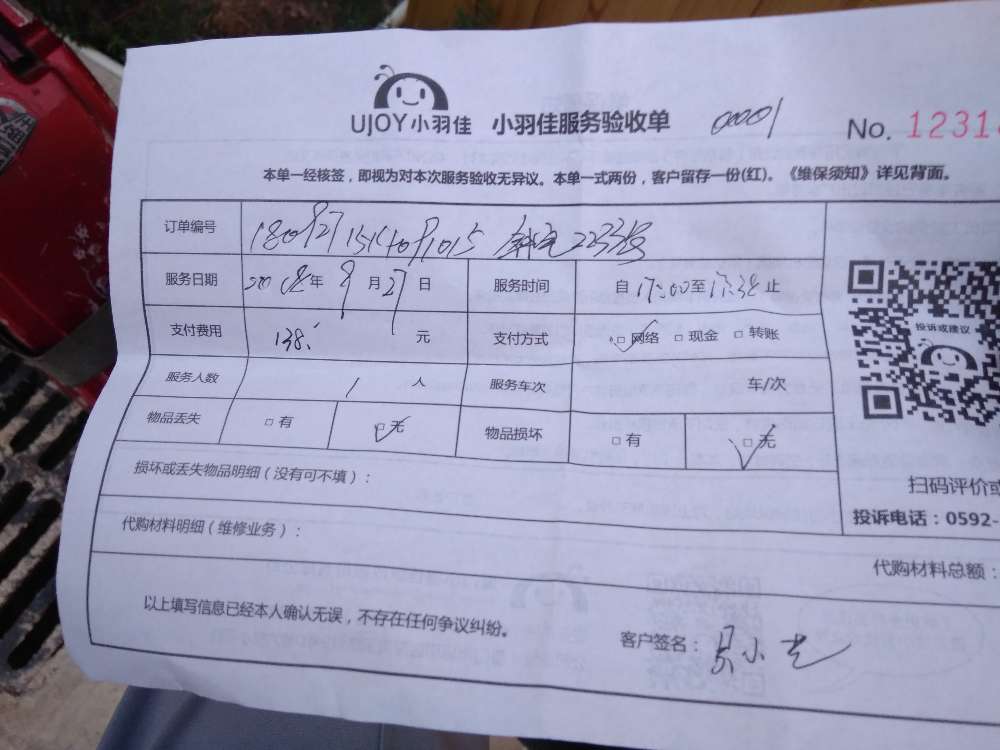 UJOY小羽佳 小羽佳服务验收单 00001 No. 1231
本单一经核签，即视为对本次服务验收无异议。本单一式两份，客户留存一份(红)。《维保须知》详见背面。
订单编号
服务日期 年 8月27日 服务时间 自17:00至17:38止
支付费用 138 元 支付方式 □网络 □现金 □转账
服务人数 1 人 服务车次 车/次
物品丢失 □有 □无 物品损坏 □有 □无
投诉或建议
损坏或丢失物品明细（没有可不填）：
扫码评价或
代购材料明细（维修业务）：
投诉电话：0592-
代购材料总额：
以上填写信息已经本人确认无误，不存在任何争议纠纷。
客户签名：